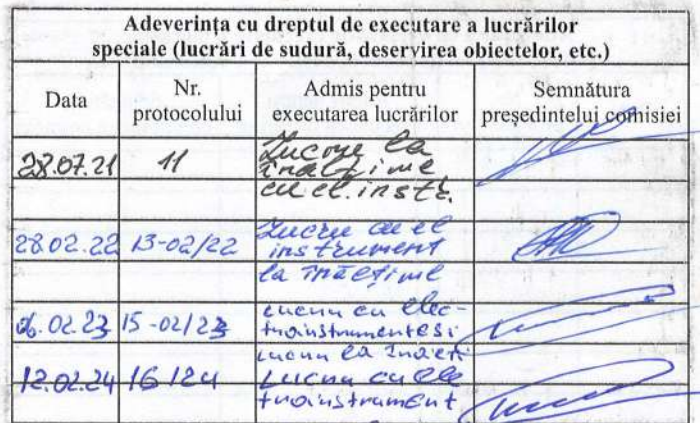 Adeverința cu dreptul de executare a lucrărilor
speciale (lucrări de sudură, deservirea obiectelor, etc.)
Data
Nr.
protocolului
Admis pentru
executarea lucrărilor
Semnătura
președintelui comisiei
28.07.21 11 Lucrye la
înălțime
cu el. instr.
28.02.22 13-02/22 Lucru cu el
instrument
la înălțime
06.02.23 15-02/23 lucru cu elec-
troinstrumente și
lucru la înălț
12.02.24 16/24 Lucru cu ele
troinstrument